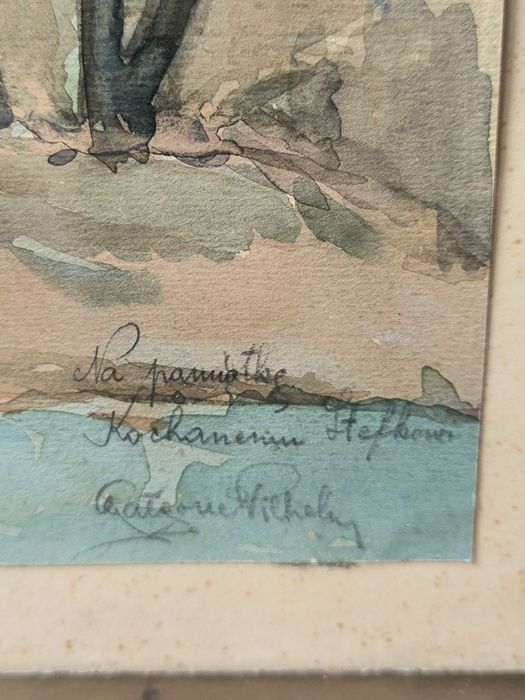 Na pamiątkę
Kochanemu Stefkowi
Wilhelm